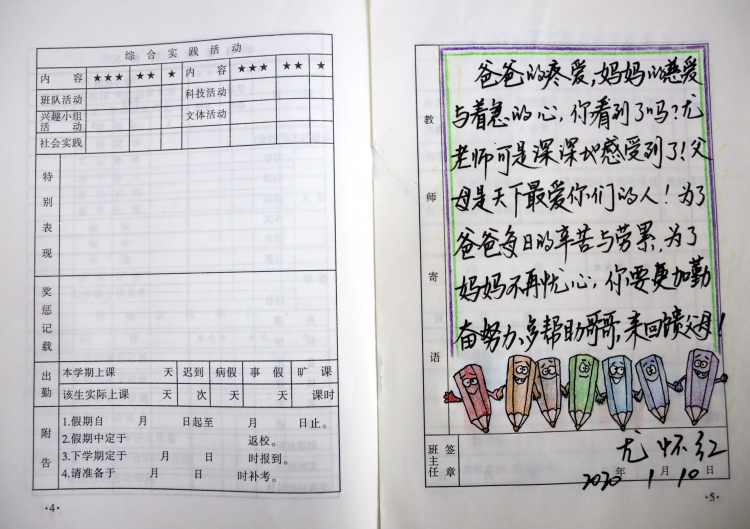 综合实践活动
内 容 ★★★ ★★ ★ 内 容 ★★★ ★★ ★
班队活动 科技活动
兴趣小组活动 文体活动
社会实践
特别表现
奖惩记载
出勤
本学期上课 天 迟到 病假 事假 旷课
该生实际上课 天 次 天 天 课时
附告
1.假期自 月 日起至 月 日止。
2.假期中定于 返校。
3.下学期定于 月 日 时报到。
4.请准备于 月 日 时补考。
·4·
教师寄语
爸爸的疼爱,妈妈的慈爱
与着急的心,你看到了吗?尤
老师可是深深地感受到了!父
母是天下最爱你们的人!为了
爸爸每日的辛苦与劳累,为了
妈妈不再忧心,你要更加勤
奋努力、多帮助哥哥,来回馈父母!
班主任签章
尤怀红
2020年1月10日
·5·